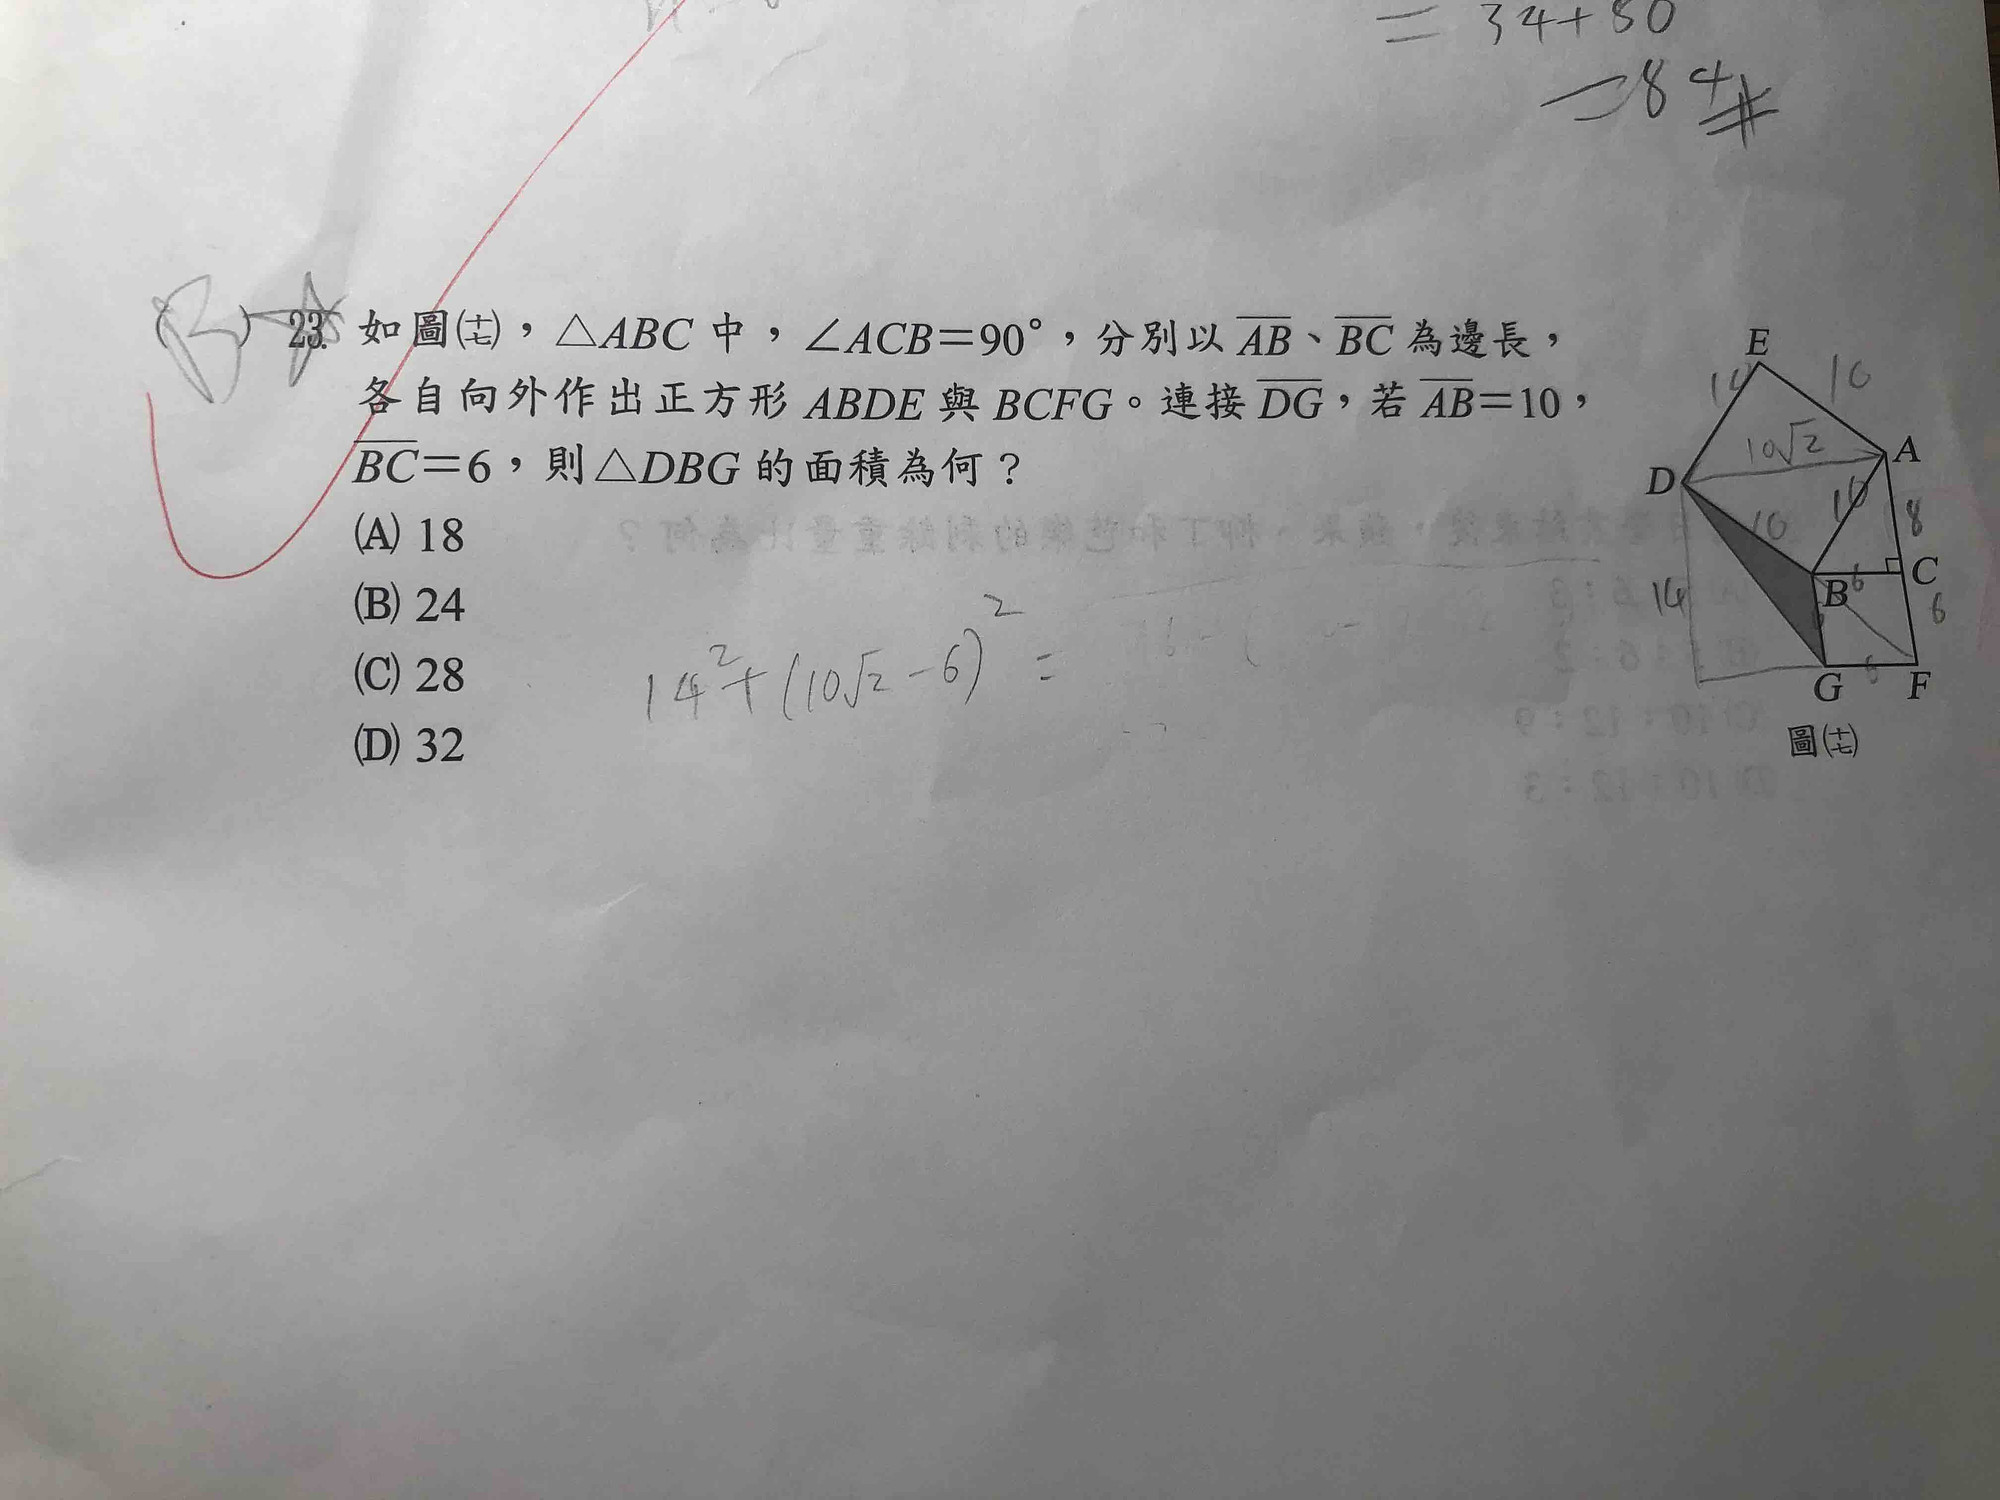 = 34+50
=84#
(B) 23. 如圖(十七)，△ABC 中，∠ACB=90°，分別以 AB、BC 為邊長，
各自向外作出正方形 ABDE 與 BCFG。連接 DG，若 AB=10，
BC=6，則△DBG 的面積為何？
(A) 18
(B) 24
(C) 28
(D) 32
14²+(10√2-6)²=
E
10
10
10√2
A
D
10
10
8
C
B
6
6
14
6
G
F
圖(十七)